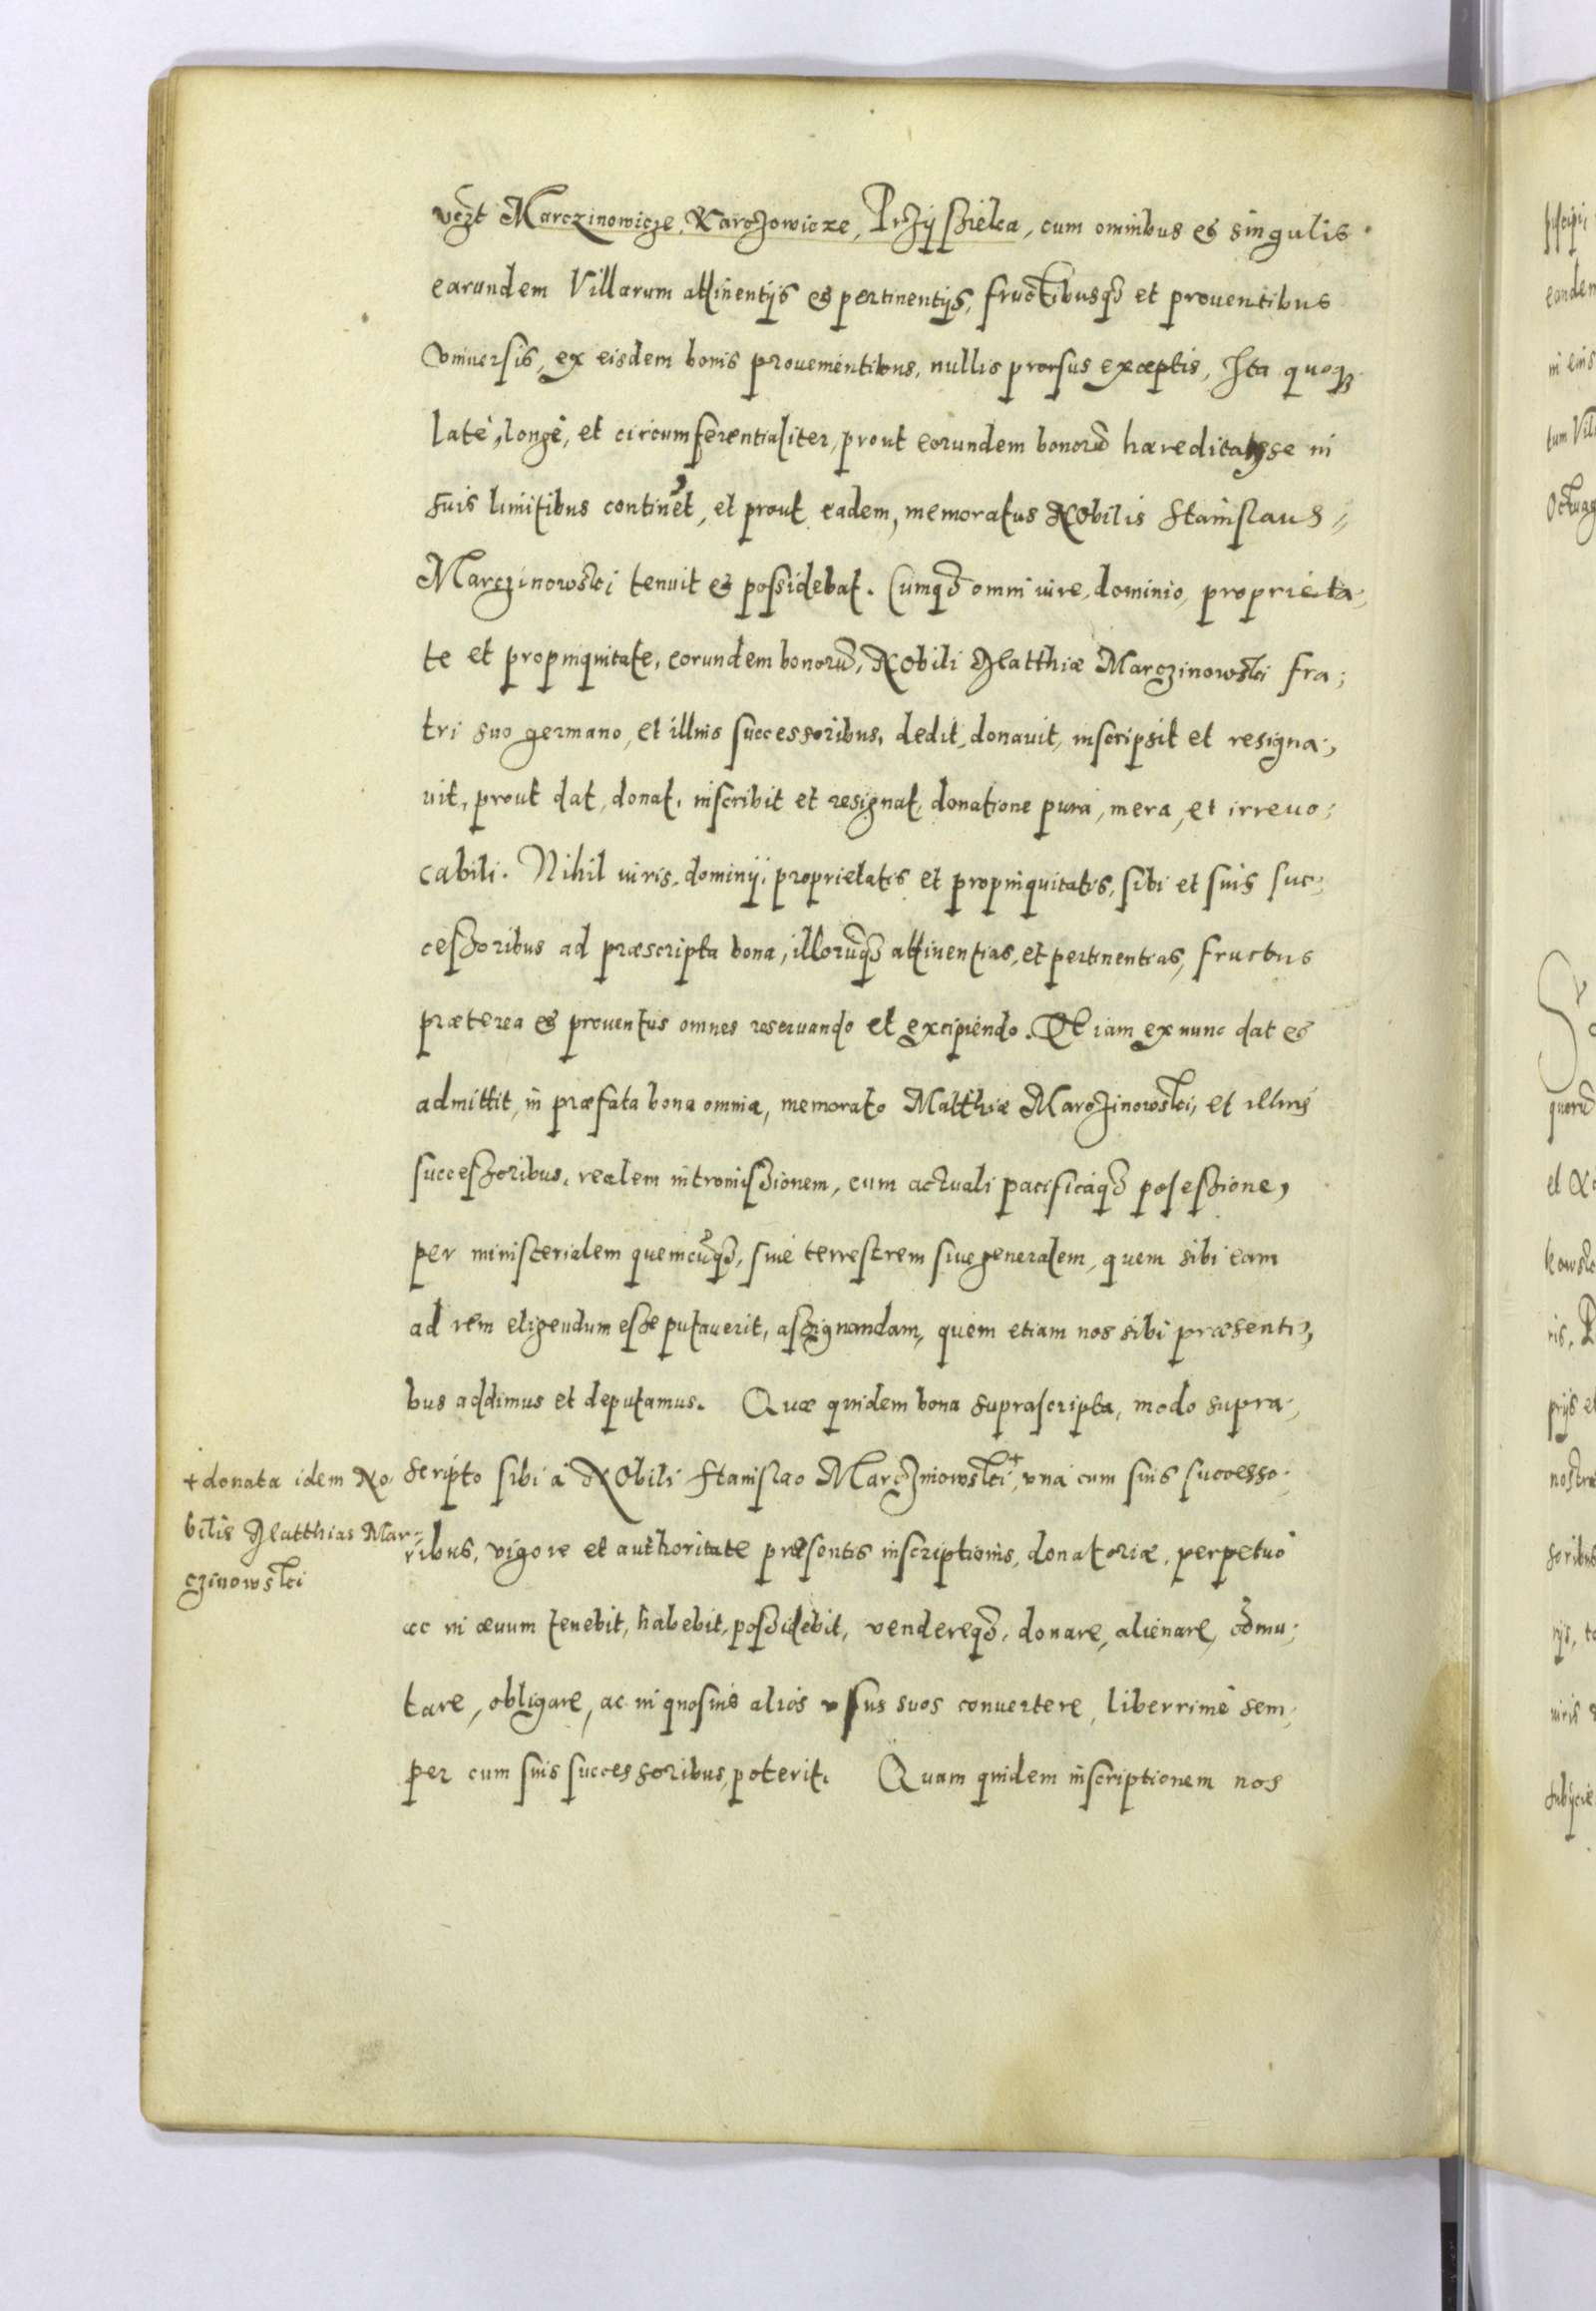 vczt Marczinowicze, Karczowicze, Przÿ szielca, cum omnibus et singulis
earundem Villarum attinentijs et pertinentijs, fructibusq3 et prouentibus
Vniuersis, ex eisdem bonis prouenientibus, nullis prorsus exceptis, Ita quoq3
latè, longè, et circumferentialiter, prout eorundem bonorū haereditas se in
suis limitibus continet, et prout eadem, memoratus Nobilis Stanislaus
Marczinowski tenuit et possidebat. Cumq3 omni iure, dominio, proprieta-
te et propinquitate, eorundem bonorū, Nobili Matthiæ Marczinowski fra-
tri suo germano, et illius successoribus, dedit, donauit, inscripsit et resigna-
uit, prout dat, donat, inscribit et resignat, donatione pura, mera, et irreuo-
cabili. Nihil iuris, dominij, proprietatis et propinquitatis, sibi et suis suc-
cessoribus ad præscripta bona, illorūq3 attinentias, et pertinentias, fructus
præterea et prouentus omnes reseruando et excipiendo. Et iam ex nunc dat et
admittit, in præfata bona omnia, memorato Matthiæ Marczinowski, et illius
successoribus, realem intromissionem, cum actuali pacificaq3 posessione,
per ministerialem quemcūq3, siue terrestrem siue generalem, quem sibi eam
ad rem eligendum esse putauerit, assignandam, quem etiam nos sibi præsenti-
bus addimus et deputamus. Quæ quidem bona suprascripta, modo supra-
scripto sibi à Nobili Stanislao Marczinowski + vnà cum suis successo-
+ donata idem No-
bilis Matthias Mar-
czinowski
ribus, vigore et authoritate præsentis inscriptionis, donatoriæ, perpetuò
ac in æuum tenebit, habebit, possidebit, vendereq3, donare, alienare, cōmu-
tare, obligare, ac in quosuis alios vsus suos conuertere, liberrimè sem-
per cum suis successoribus, poterit. Quam quidem inscriptionem nos